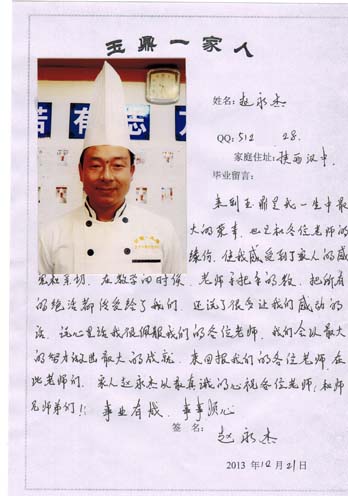 玉鼎一家人
若有志
姓名：赵永杰
QQ：512 28.
家庭住址：陕西汉中.
毕业留言：
来到玉鼎是我一生中最
大的荣幸, 也是和各位老师的
缘份, 使我感受到了家人的温
和亲切. 在教学的时候, 老师手把手的教, 把所有
的绝活都传受给了我们. 还说了很多让我们感动的
话, 说心里话我很佩服我们的各位老师, 我们会以最大
的努力做出最大的成就. 来回报我们的各位老师, 在
此老师们. 家人赵永杰以最真诚的心祝各位老师; 和师
兄师弟们!! 事业有成, 事事顺心
签 名：
赵永杰
2013 年12月21日